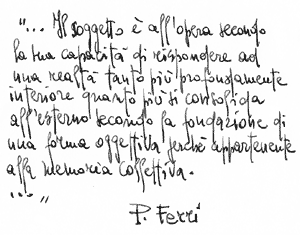 "... Il soggetto è all'opera secondo
la sua capacità di rispondere ad
una realtà tanto più profondamente
interiore quanto più si consolida
all'esterno secondo la fondazione di
una forma oggettiva perchè appartenente
alla memoria collettiva.
... "
P. Ferri